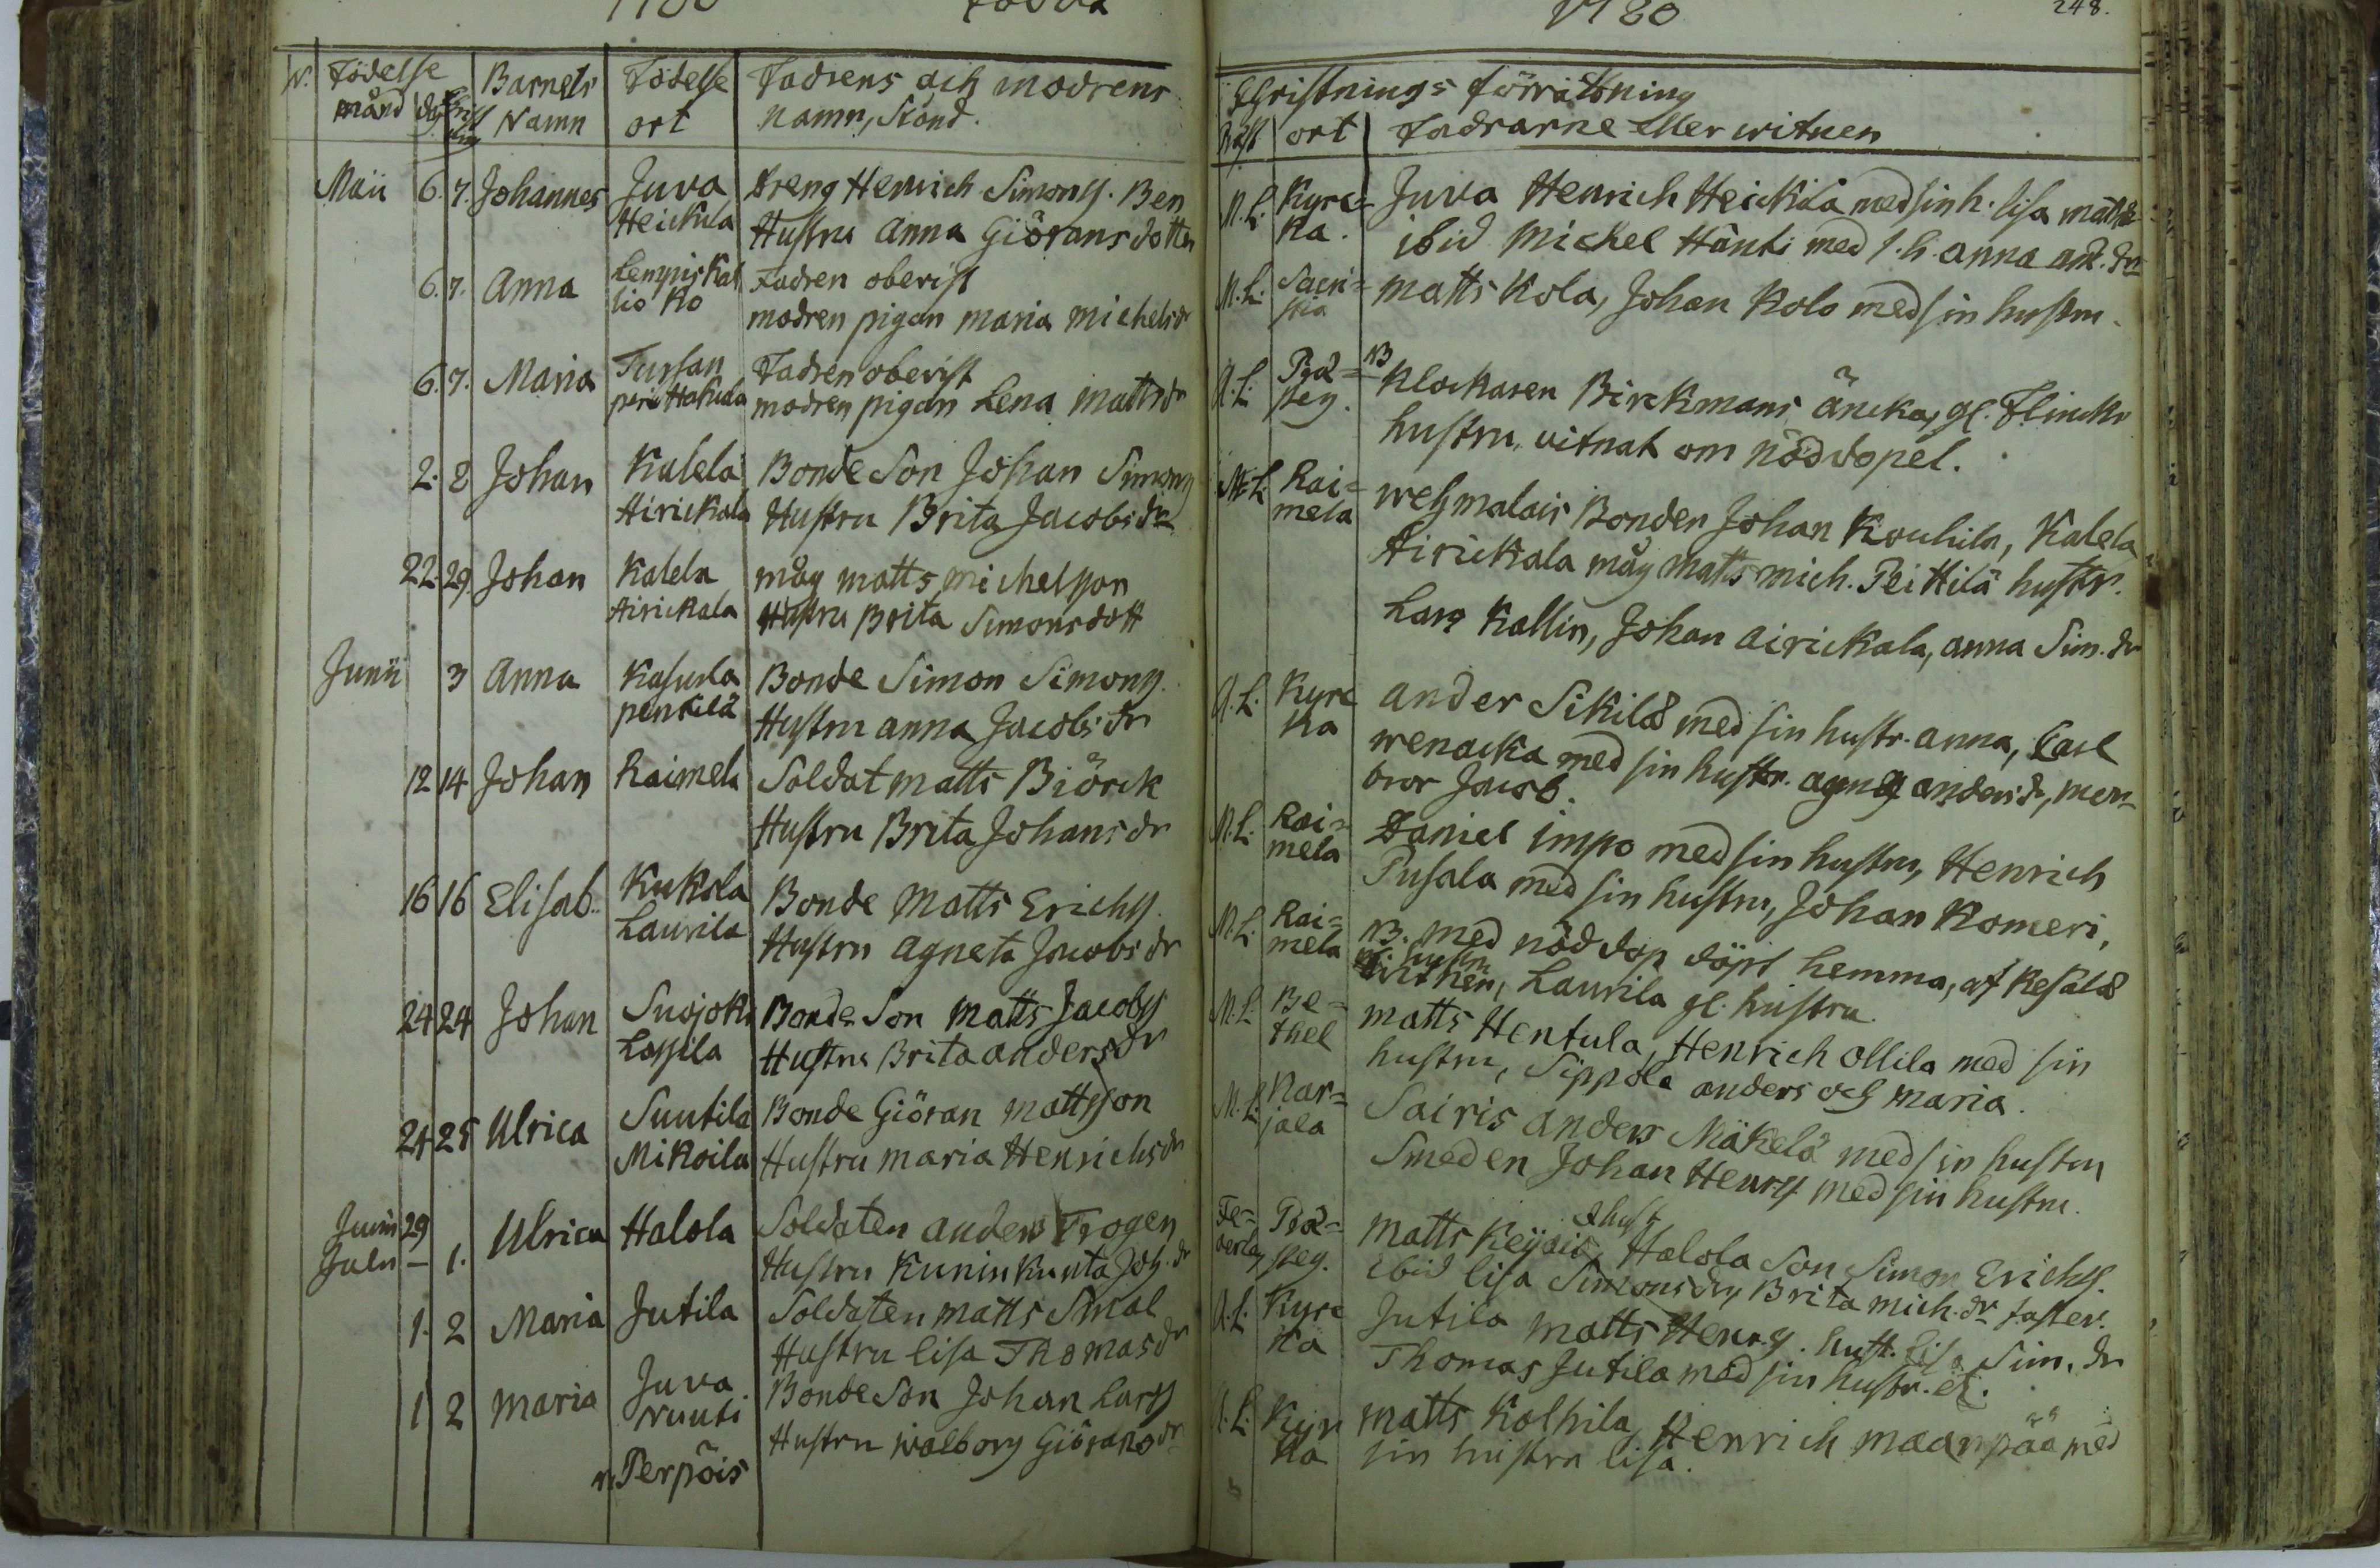 1780
248.
N. Födelse Barnets Födelse Fadrens ach modrens
månd dag Namn ort namn, Stånd.
Maii 6. 7. Johannes Juva Dreng Henrich Simons. Ben
Heickila Hustru Anna Giöransdotter
6. 7. Anna Lempis Kal Fadren oberist
lio Ko modren pigan maria michelsdr
6. 7. Maria Fadren oberist
Hakula modren pigan Lena mattsdr
2. 8 Johan Kalela Bonde Son Johan Simons
Airickala Hustru Brita Jacobsdr
22. 29. Johan Kalela måg matts michelson
Airickala Hustru Brita Simonsdott
Junii 3 Anna Kasurla Bonde Simon Simons.
penkilä Hustru anna Jacobsdr
12 14 Johan Raimela Soldat matts Biörck
Hustru Brita Johansdr
16 16 Elisab. Kukola Bonde Matts Erichs.
Laurila Hustru Agneta Jacobsdr
24 24 Johan Suojoki Bonde Son Matts Jacobs
Lassila Hustru Brita andersdr
24 25 Ulrica Suutila Bonde Giöran mattsson
Mikoila Hustru maria Henrichsdr
Junii 29 Ulrica Halola Soldaten anders Trogen
Julii – 1. Hustru Kuninkunta Joh. dr
1. 2 Maria Jutila Soldaten matts Smal
Hustru lisa Thomasdr
1 2 maria Juva Bonde Son Johan Lars
Nuuti Hustru walborg Giöransdr
n. Perpöis
1780
Christnings förrättning
Präst ort Fadrarne eller witnen
M. L. Kyrc= Juva Henrich Heickilä med sin h. lisa matts
ka. ibid Michel Hänti med s. h. anna and. dr
M. L. Sacri= matts Kola, Johan Kolo med sin hustru.
stia
A. L. Prä= NB Klockaren Birckmans äncka, gl. Flincks
steg. hustru, vitnat om nöddopel.
M. L. Rai= wehmalais Bonden Johan Kouhila, Kalela
mela Airickala måg Matts mich. Peittilä hustr.
Lars Kallin, Johan airickala, anna Sim. dr
A. L. Kyrc ander Sikilä med sin hustr. anna, Carl
ka wenacka med sin hustr. agneta andersd,
bror Jacob.
M. L. Rai= Daniel impo med sin hustru, Henrich
mela Pusala med sin hustru, Johan Komeri,
M. L. Rai= NB. med nöd dop döpt hemma, af Kesälä
mela hustru
Laurila gl. hustru.
M. L. Be= matts Hentula, Henrich ollila med sin
thel hustru, Sippola anders och maria.
M. L. Kar= Sairis anders Mäkelä med sin hustru
jala Smeden Johan Henrs med sin hustru.
Prä= matts Halola Son Simon Erichs.
steg. ibid lisa Simonsdr, Brita mich. dr faster.
A. L. Kyrc Jutila matts Henrs. hustr. lisa Sim. dr
ka Thomas Jutila med sin hustr. etc.
A. L. Kyr matts Kolhila, Henrich maanpää med
ka sin hustru lisa.